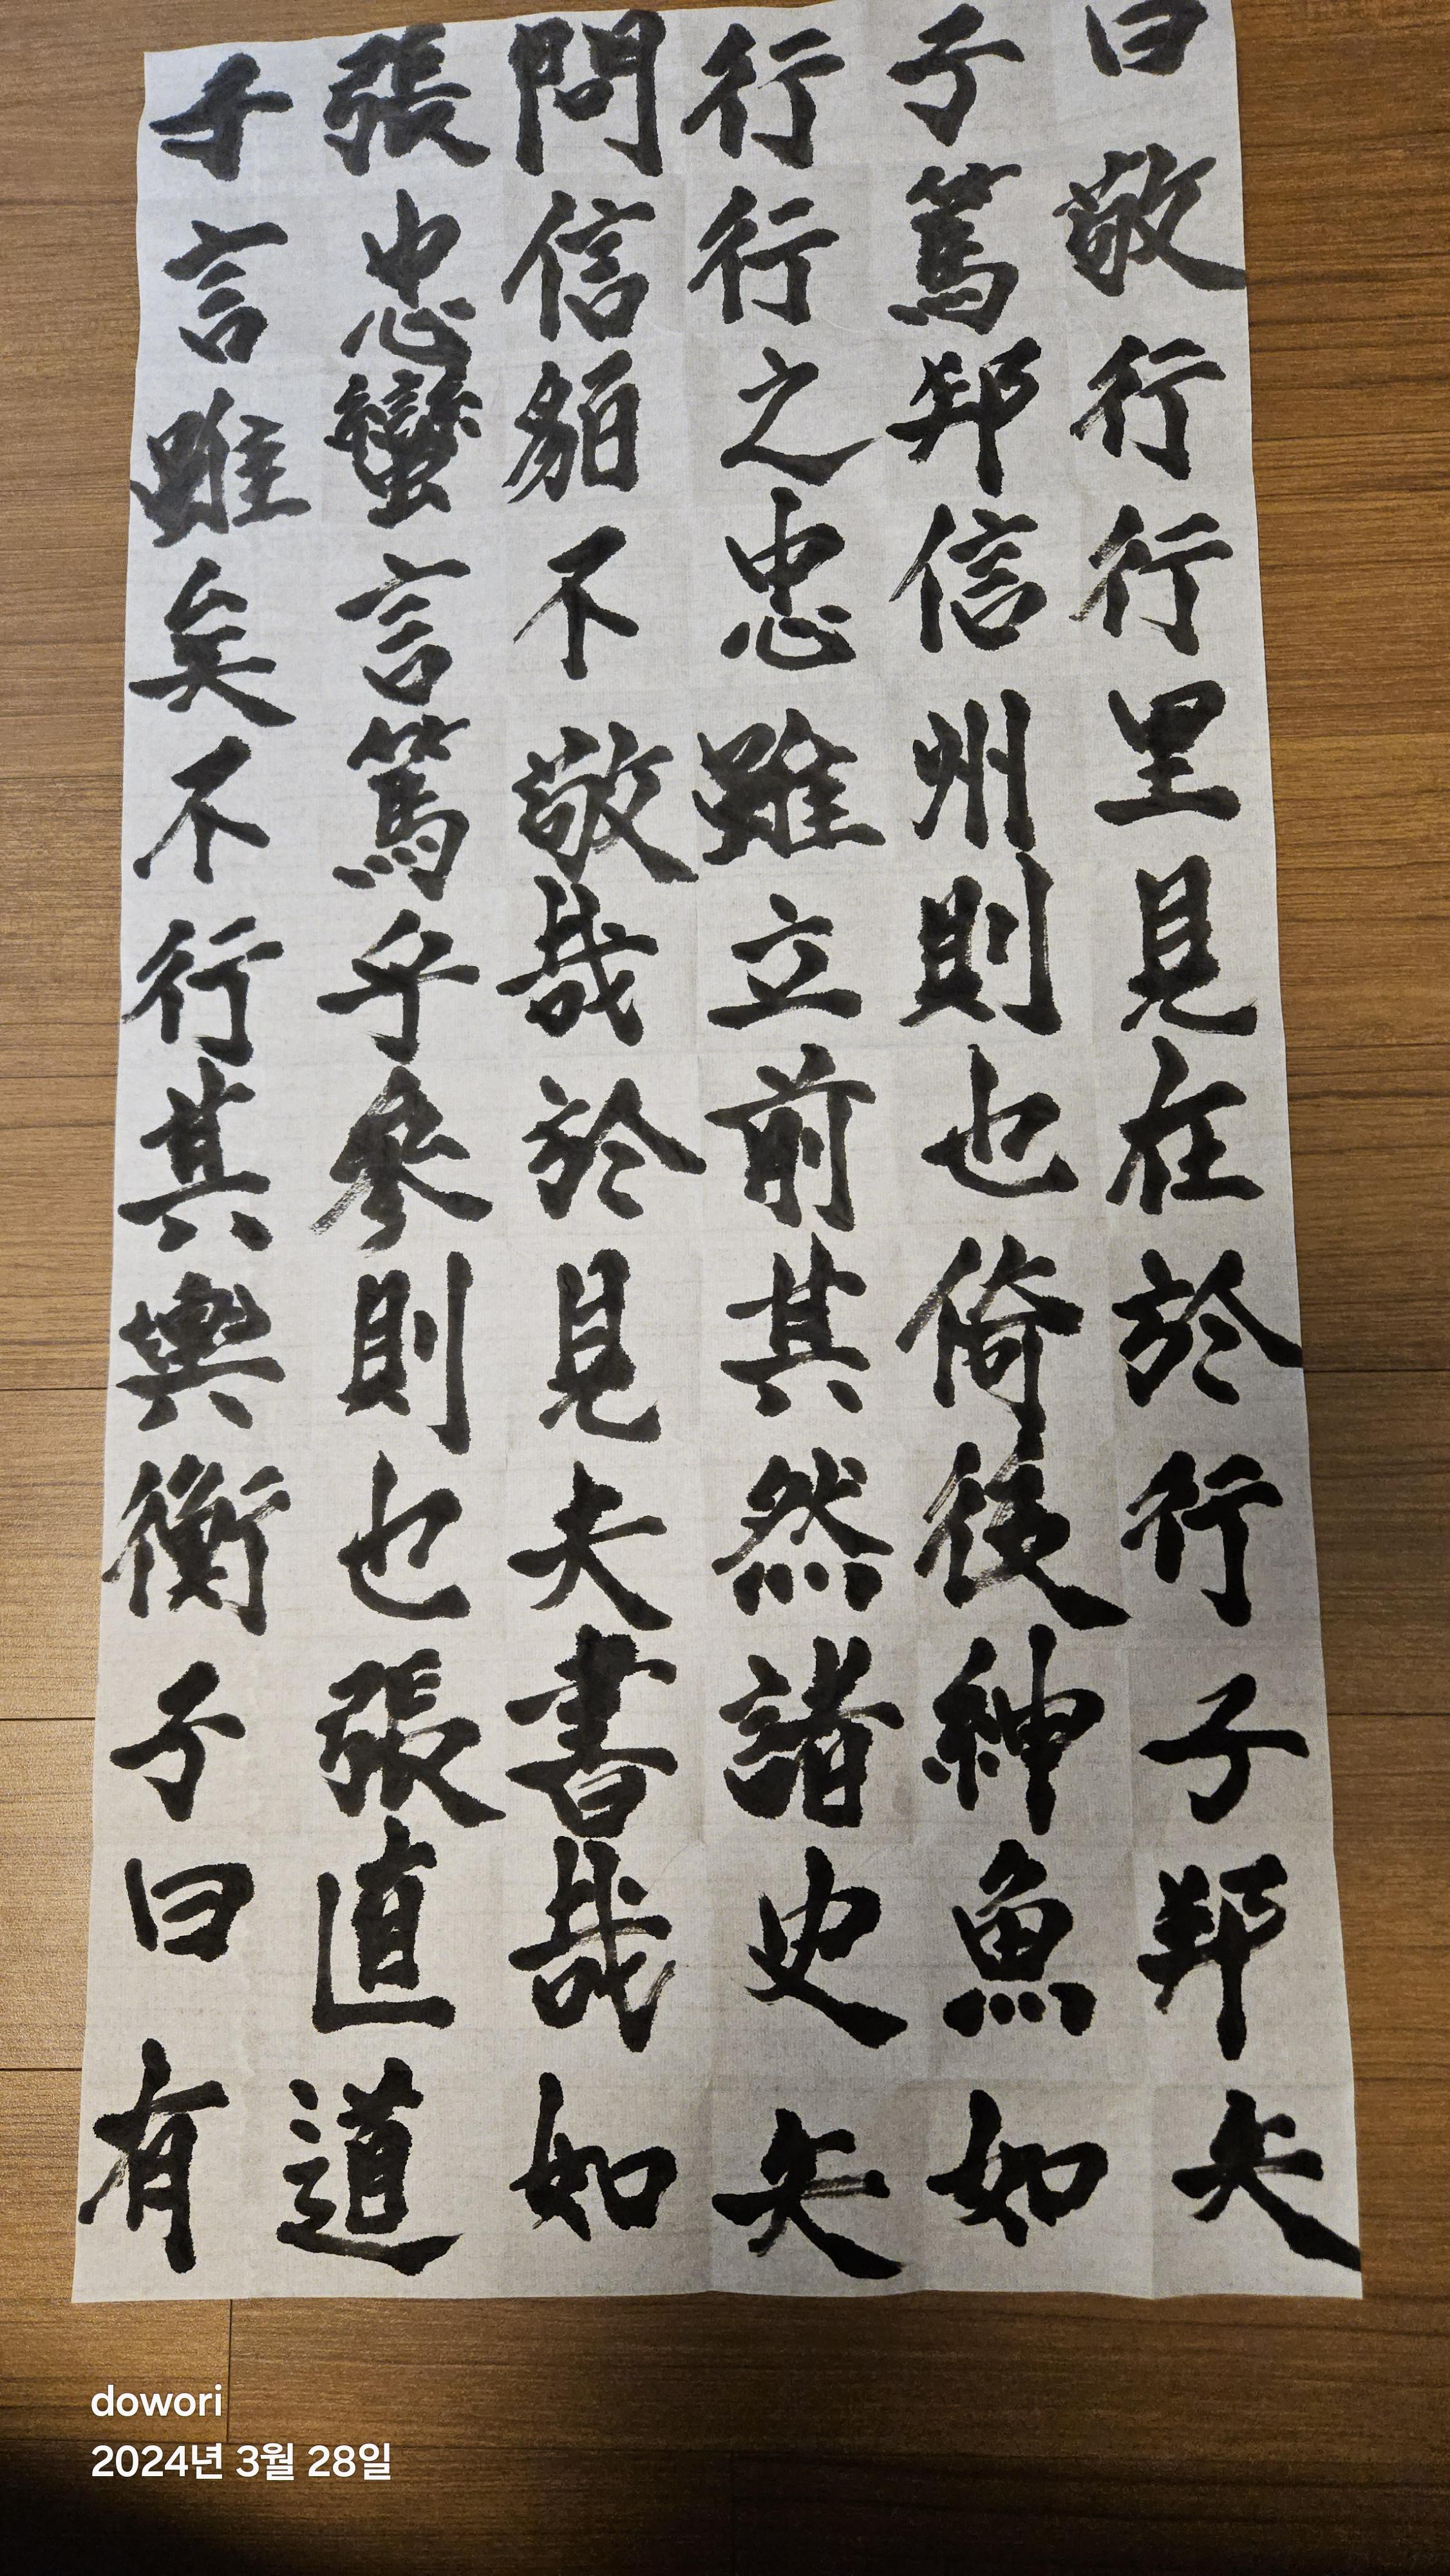 子張問行子曰
言忠信行篤敬
雖蠻貊之邦行
矣言不忠信行
不篤敬雖州里
行乎哉立則見
其參於前也在
輿則見其倚於
衡也夫然後行
子張書諸紳子
曰直哉史魚邦
有道如矢如矢
dowori
2024년 3월 28일